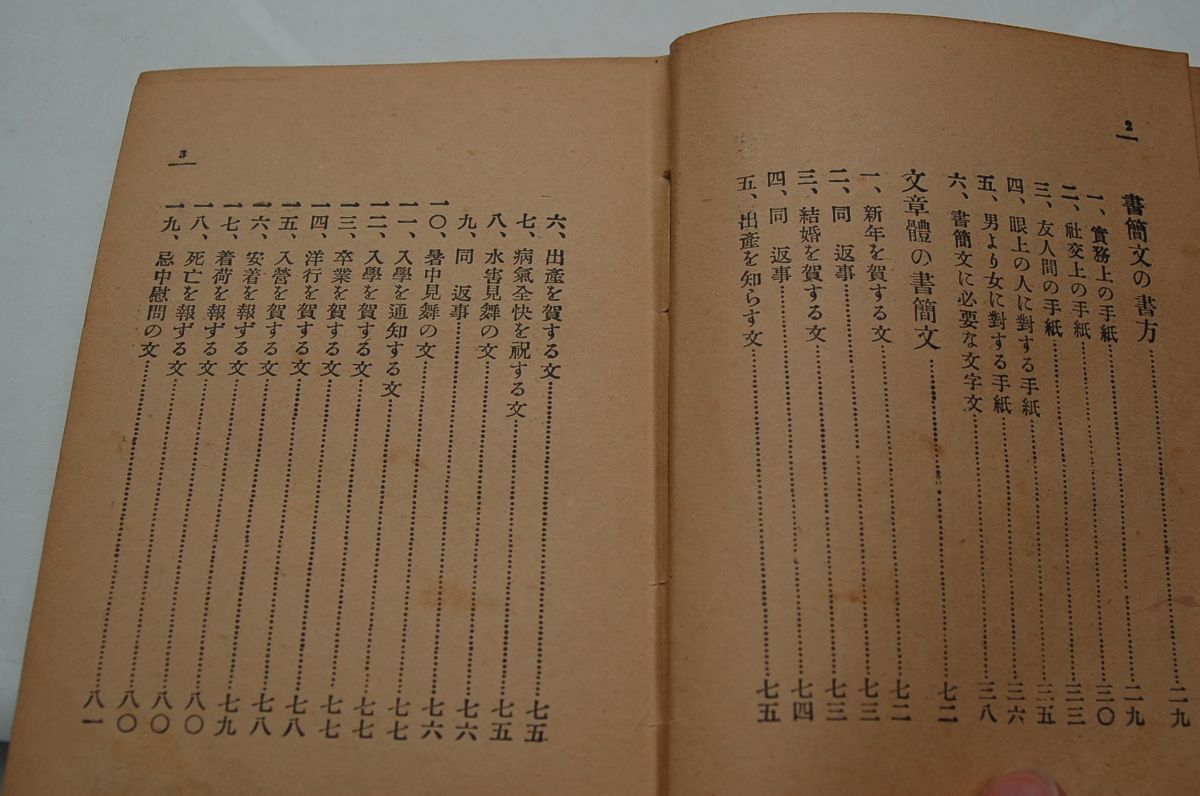 2
書簡文の書方……二九
一、實務上の手紙……二九
二、社交上の手紙……三〇
三、友人間の手紙……三三
四、眼上の人に對する手紙……三五
五、男より女に對する手紙……三六
六、書簡文に必要な文字文……三八
文章體の書簡文……七二
一、新年を賀する文……七二
二、同　返事……七三
三、結婚を賀する文……七三
四、同　返事……七四
五、出產を知らす文……七五
3
六、出產を賀する文……七五
七、病氣全快を祝する文……七五
八、水害見舞の文……七六
九、同　返事……七六
一〇、暑中見舞の文……七七
一一、入學を通知する文……七七
一二、入學を賀する文……七七
一三、卒業を賀する文……七八
一四、洋行を賀する文……七八
一五、入營を賀する文……七九
一六、安着を報ずる文……八〇
一七、着荷を報ずる文……八〇
一八、死亡を報ずる文……八〇
一九、忌中慰問の文……八一